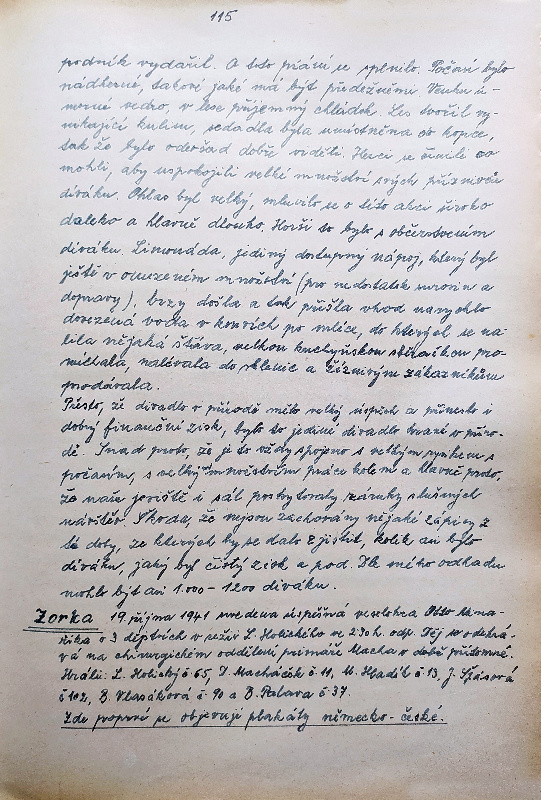 115
podnik vydařil. O toto přání se splnilo. Počasí bylo
nádherné, takové jaké má být předežněmu Venku ú-
morné vedro, v lese příjemný chládek. Les tvořil vy-
nikající kulisu, sedadla byla umístněna do kopce,
tak že bylo odevšad dobře viděti. Herci se činili co
mohli, aby uspokojili velké množství svých příznivců
diváků. Ohlas byl velký, mluvilo se o této akci široko
daleko a hlavně dlouho. Horší to bylo s občerstvením
diváků. Limonáda, jediný dostupný nápoj, který byl
ještě v omezeném množství (pro nedostatek surovin a
dopravy), brzy došla a tak přišla vhod narychlo
dovezená voda v konvích po mléce, do kterých se na-
lila nějaká šťáva, velkou kuchyňskou sběračkou pro-
míchala, nalévala do sklenic a žíznivým zákazníkům
prodávala.
Přesto, že divadlo v přírodě mělo velký úspěch a přineslo i
dobrý finanční zisk, bylo to jediné divadlo hrané v příro-
dě. Snad proto, že je to vždy spojeno s velkým rizikem s
počasím, s velkým množstvím práce kolem a hlavně proto,
že naše jeviště i sál poskytovaly záruky slušných
návštěv. Škoda, že nejsou zachovány nějaké zápisy z
té doby, ze kterých by se dalo zjistit, kolik asi bylo
diváků, jaký byl čistý zisk a pod. Dle mého odhadu
mohlo být asi 1.000 - 1200 diváků.
Zorka 19. října 1941 uvedena úspěšná veselohra Otto Mina-
říka o 3 dějstvích v režii L. Holického ve 2 30 h. odp. Děj se odehrá-
vá na chirurgickém oddělení primáře Macha v době přítomné.
Hráli: L. Holický č 65, J. Macháček č 11, M. Hladík č 13, J.
č 102, B. Vlasáková č 90 a B. Palava č 37.
Zde poprvé se objevují plakáty německo-české.